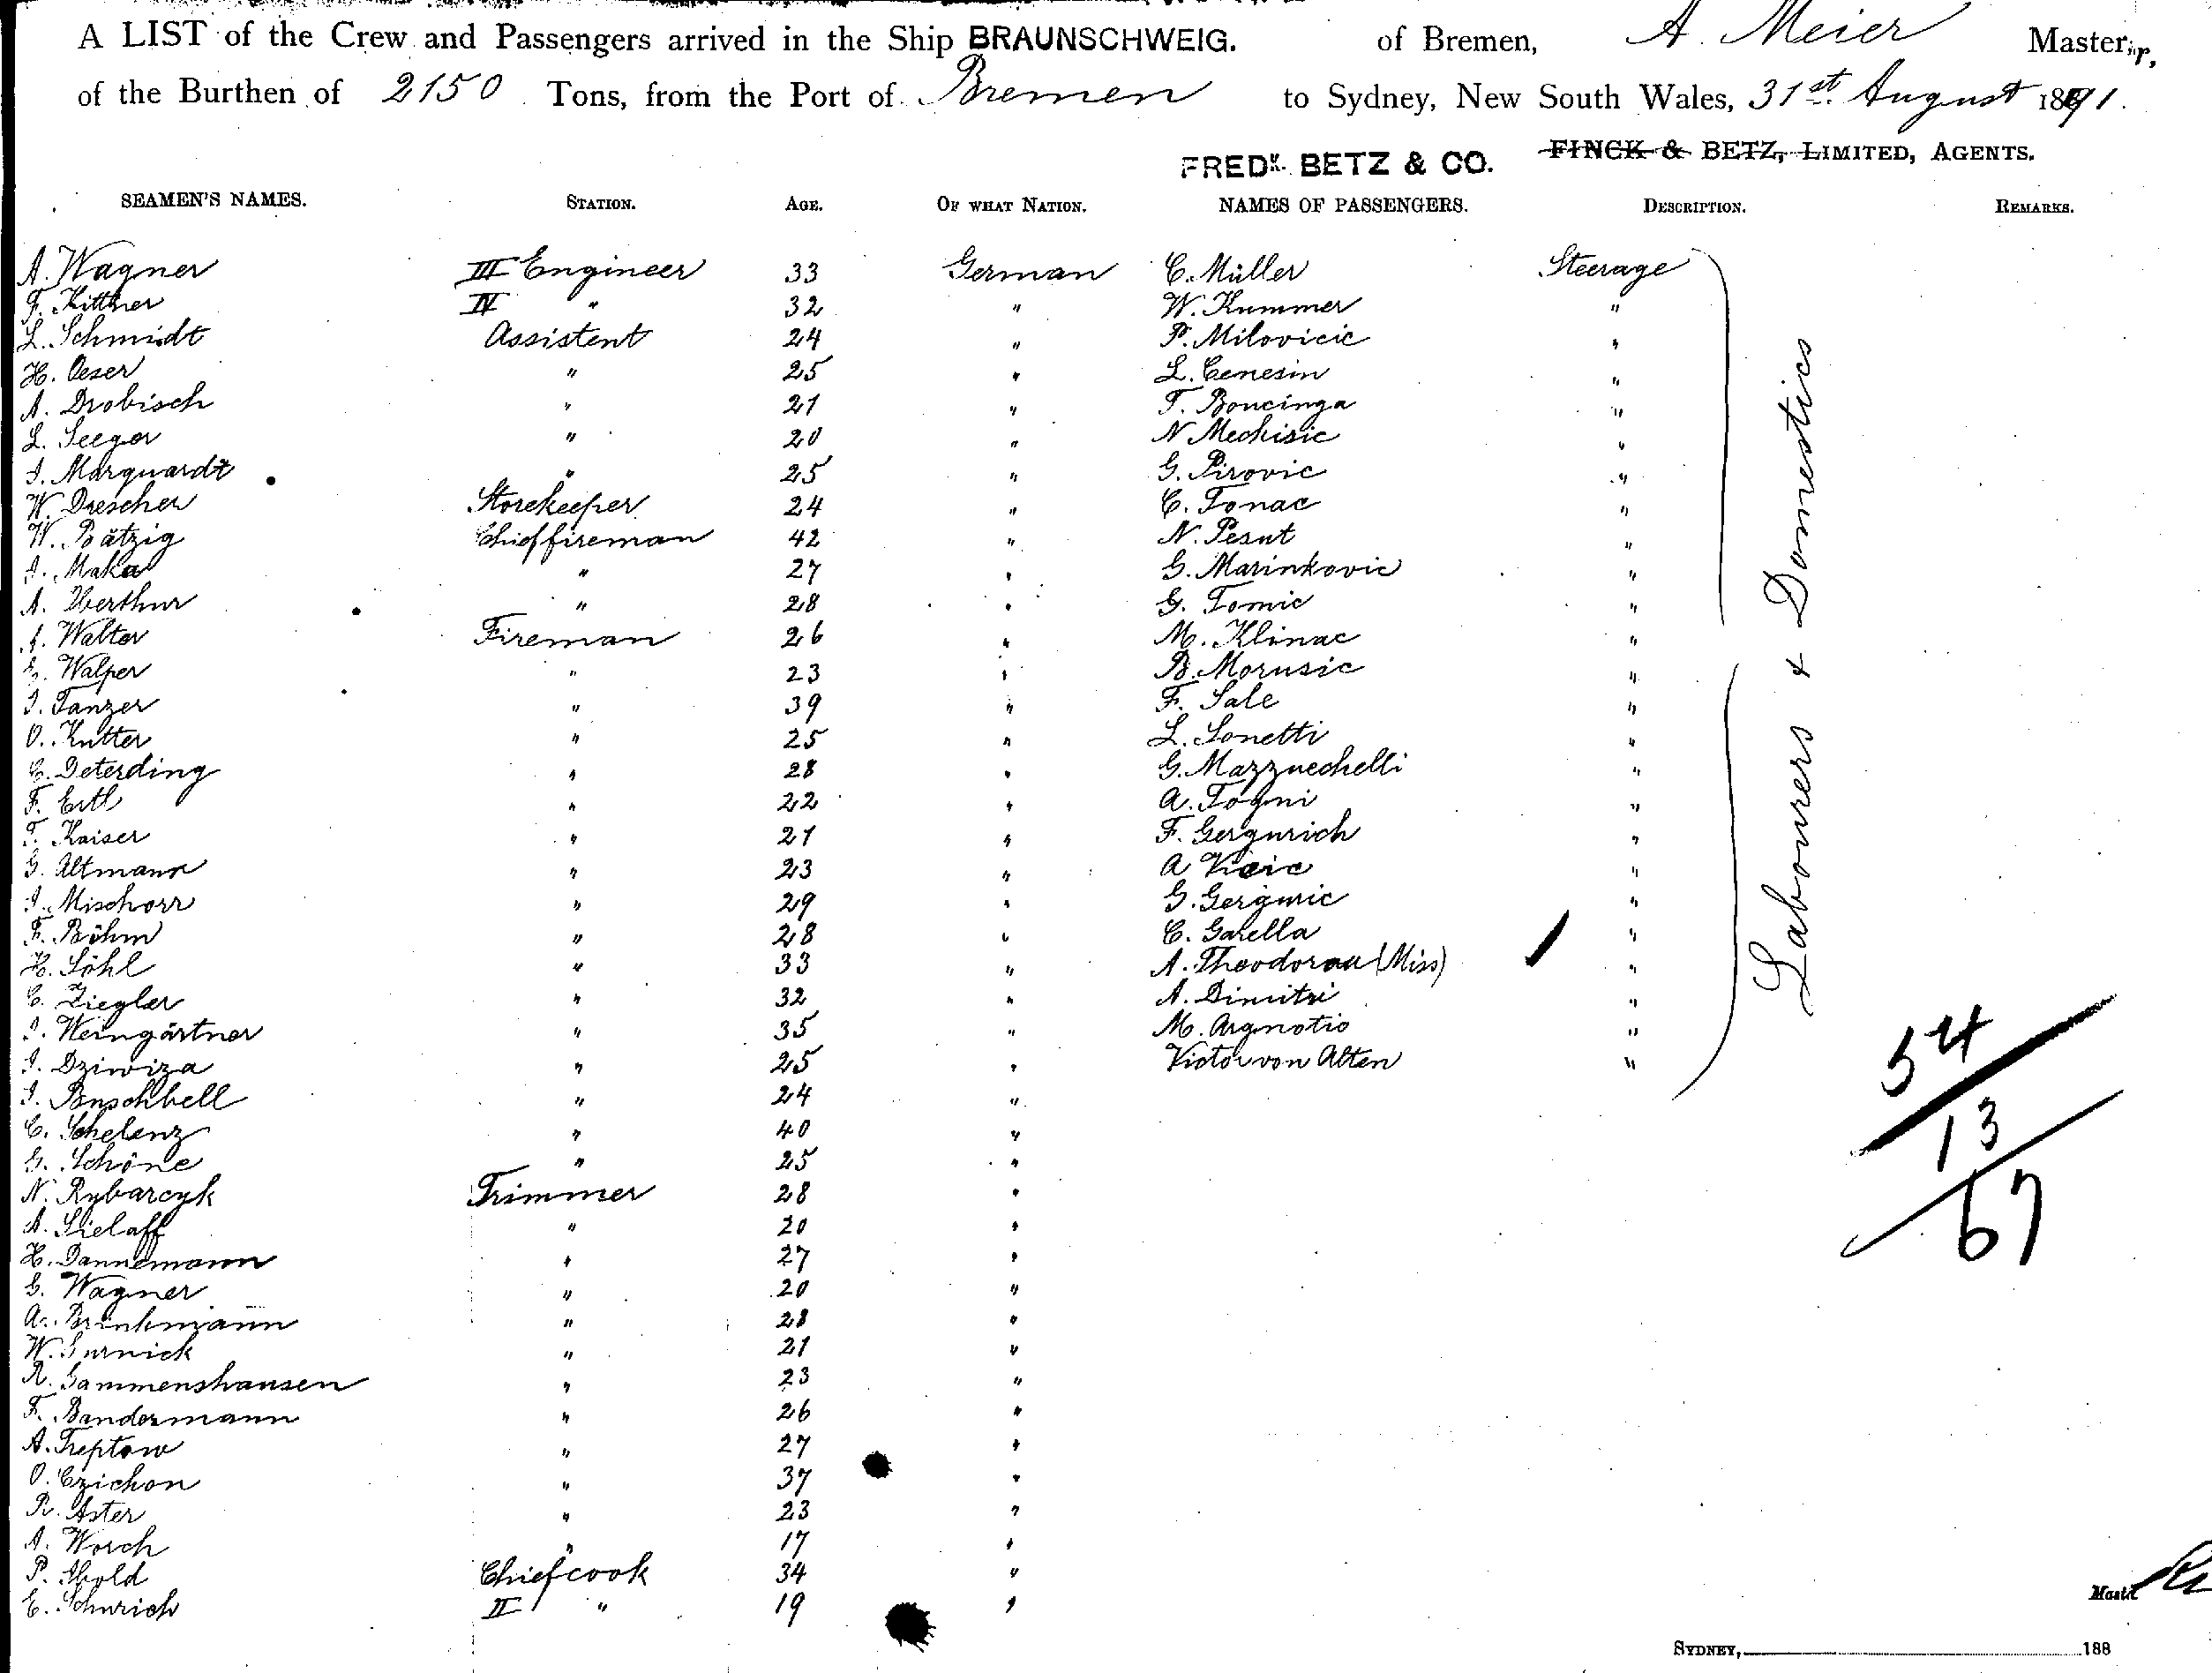 A LIST of the Crew and Passengers arrived in the Ship BRAUNSCHWEIG. of Bremen, A. Meier Master,
of the Burthen of 2150 Tons, from the Port of Bremen to Sydney, New South Wales, 31st. August 1891.
FREDK. BETZ & CO. FINCK & BETZ, LIMITED, AGENTS.
SEAMEN'S NAMES. STATION. AGE. OF WHAT NATION. NAMES OF PASSENGERS. DESCRIPTION. REMARKS.
A. Wagner III Engineer 33 German C. Müller Steerage
F. Kittner IV " 32 " W. Kummer "
L. Schmidt Assistent 24 " P. Milovicic "
H. Oeser " 25 " L. Cenesin "
A. Drobisch " 21 " T. Boncinga "
L. Seeger " 20 " N Mechisic "
I. Marquardt " 25 " G. Pirovic "
W. Drescher Storekeeper 24 " C. Tonac "
W. Pätzig Chieffireman 42 " N. Pesut "
I. Maka " 27 " G. Marinkovic "
A. Iberthur " 28 " G. Tomic "
A. Walter Fireman 26 " M. Klinac "
G. Walper " 23 " B. Morusic "
I. Tanzer " 39 " F. Sale "
O. Kutter " 25 " L. Sonetti "
C. Deterding " 28 " G. Mazzuechelli "
F. Ertl " 22 " A. Togni "
T. Kaiser " 21 " F. Gergurich "
G. Altmann " 23 " A "
I. Mischorr " 29 " G. Gerguric "
F. Böhm " 28 " C. Garella "
H. Söhl " 33 " A. Theodorou (Miss) "
C. Ziegler " 32 " A. Dimitri "
I. Weingärtner " 35 " M. Argnotio "
I. Dziwiza " 25 " Victor von Alten "
I. Pönschbell " 24 "
C. Schelenz " 40 "
G. Schöne " 25 "
N. Rybarcyk Trimmer 28 "
A. Sielaff " 20 "
H. Dannemann " 27 "
G. Wagner " 20 "
A. Brinkmann " 28 "
W. Gurnick " 21 "
R. Gammenshausen " 23 "
F. Bandermann " 26 "
A. Treptow " 27 "
O. Czichon " 37 "
R. Aster " 23 "
A. Worch " 17 "
P. Abold Chiefcook 34 "
E. Schurich II " 19 "
Labourers & Domestics
54
13
67
Master
SYDNEY, 188